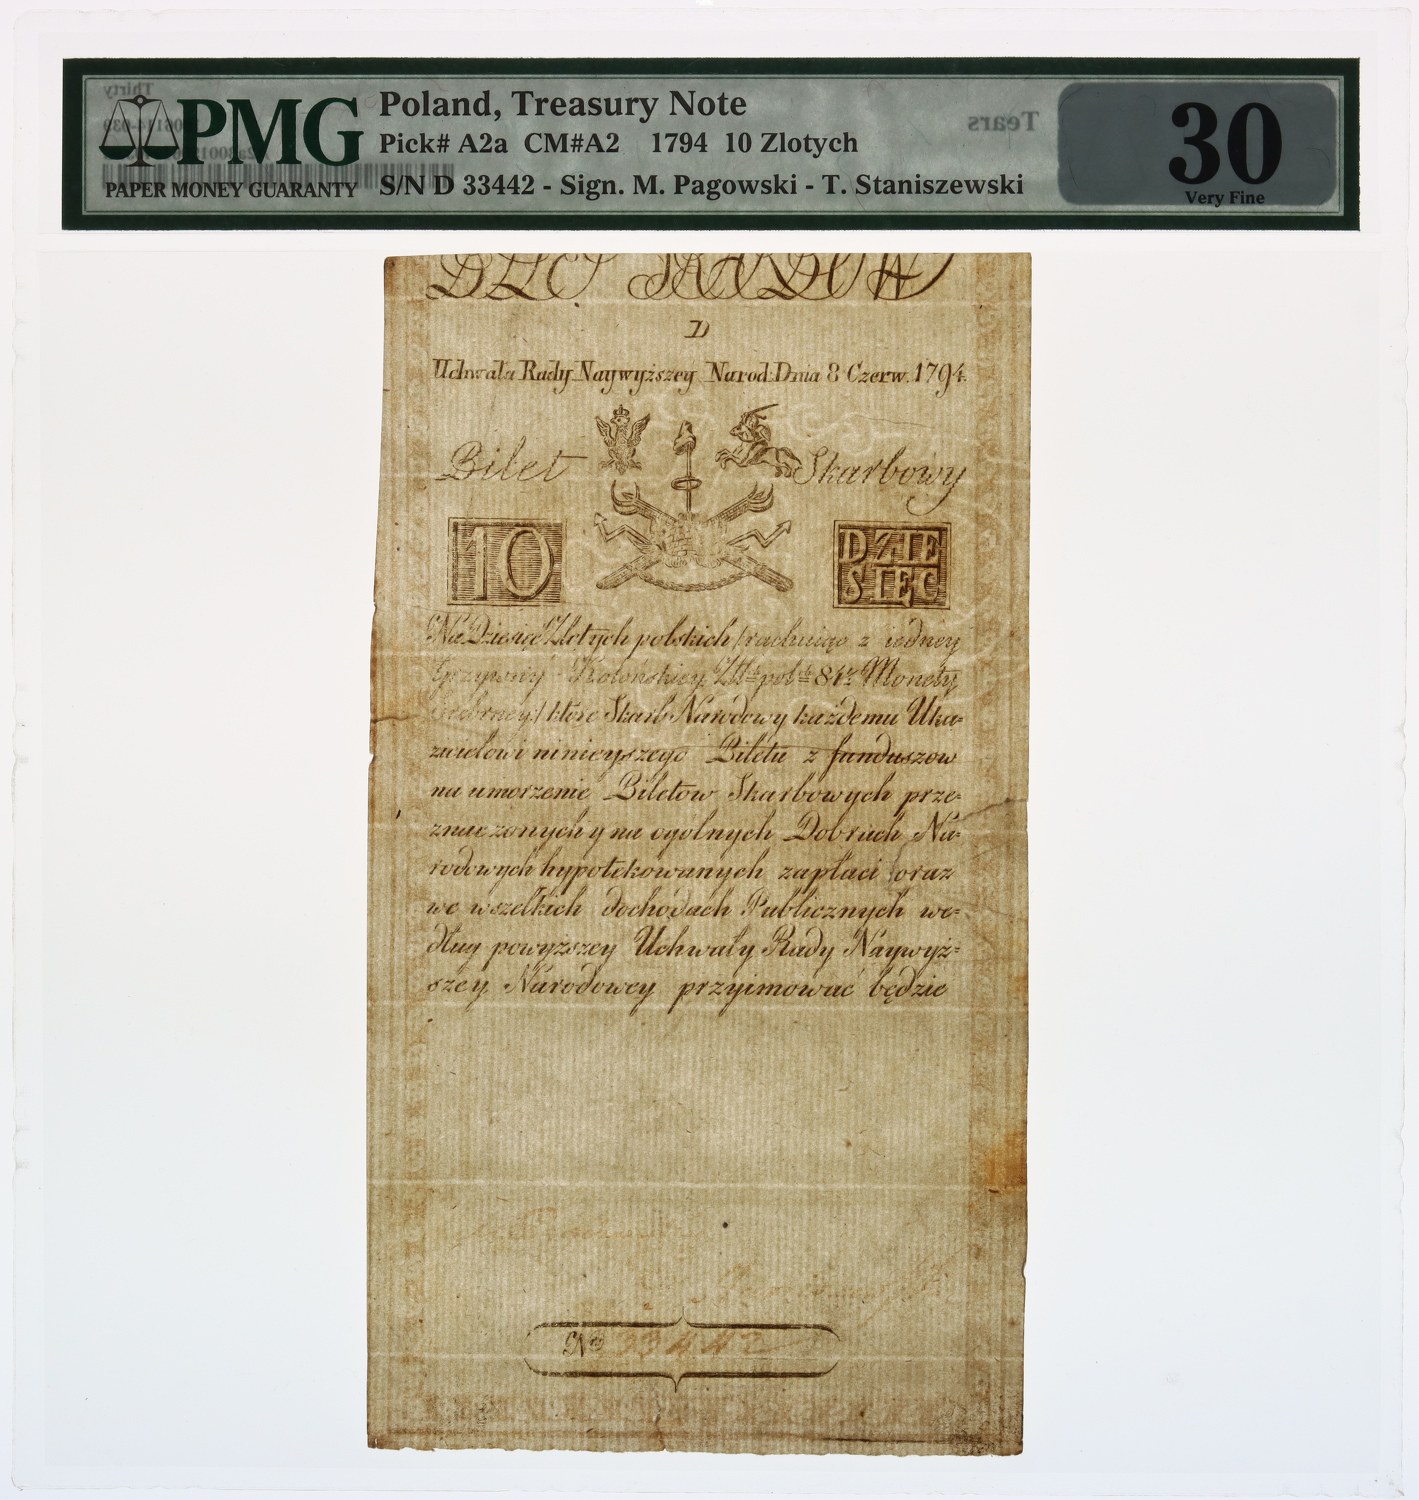 PMG
PAPER MONEY GUARANTY
Poland, Treasury Note
Pick# A2a CM#A2 1794 10 Zlotych
S/N D 33442 - Sign. M. Pagowski - T. Staniszewski
Tears
Thirty
30
Very Fine
D
Uchwała Rady Naywyższey Narod: Dnia 8 Czerw. 1794.
Bilet Skarbowy
10
DZIE
SIĘC
Na Dziesięć Złotych polskich /rachuiąc z iedney
Grzywny Kolońskiey Monety
/ które Skarb Narodowy każdemu Uka=
zicielowi ninieyszego Biletu z funduszow
na umorzenie Biletow Skarbowych prze=
znaczonych y na ogolnych Dobrach Na=
rodowych hypotekowanych zapłaci oraz
we wszelkich dochodach Publicznych we=
dług powyższey Uchwały Rady Naywyż=
szey Narodowey przyimować będzie
No 33442